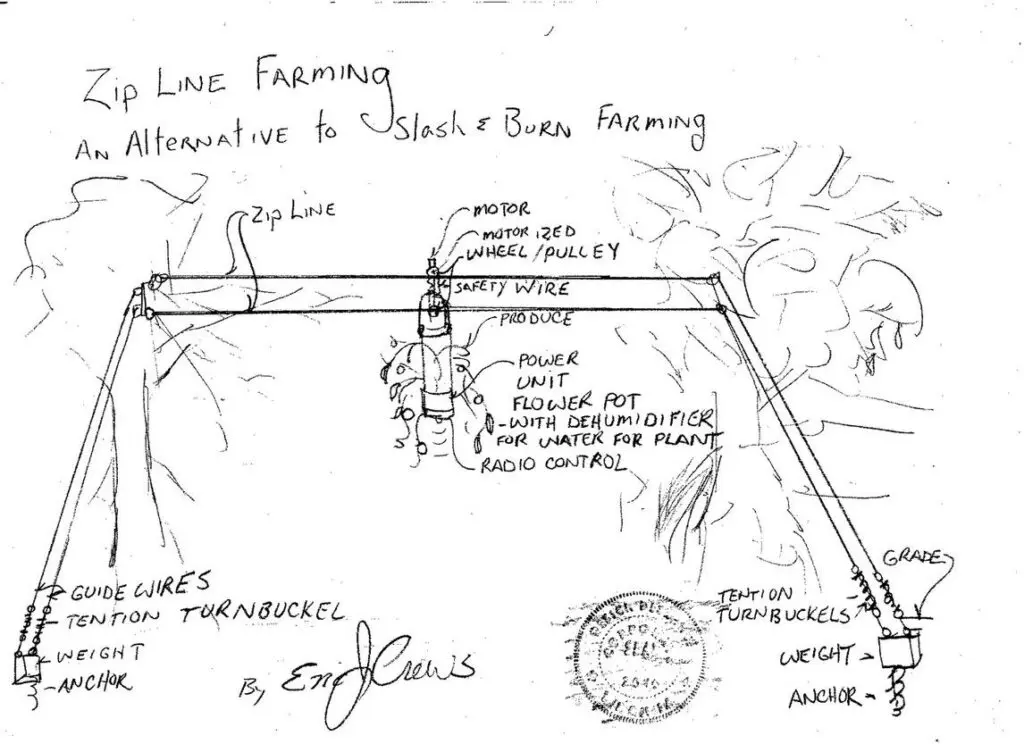 Zip LINE FARMING
AN AlterNAtiVE to Slash & BURN FARMING
Zip LINE
MOTOR
MOTORIZED
WHEEL/PULLEY
SAFETY WIRE
PRODUCE
POWER
UNIT
FLOWER POT
-WITH DEHUMIDIFIER
FOR WATER FOR PLANT
RADIO CONTROL
GUIDE WIRES
TENTION TURNBUCKEL
WEIGHT
ANCHOR
By Eric J Crews
GRADE
TENTION
TURNBUCKELS
WEIGHT
ANCHOR
2010